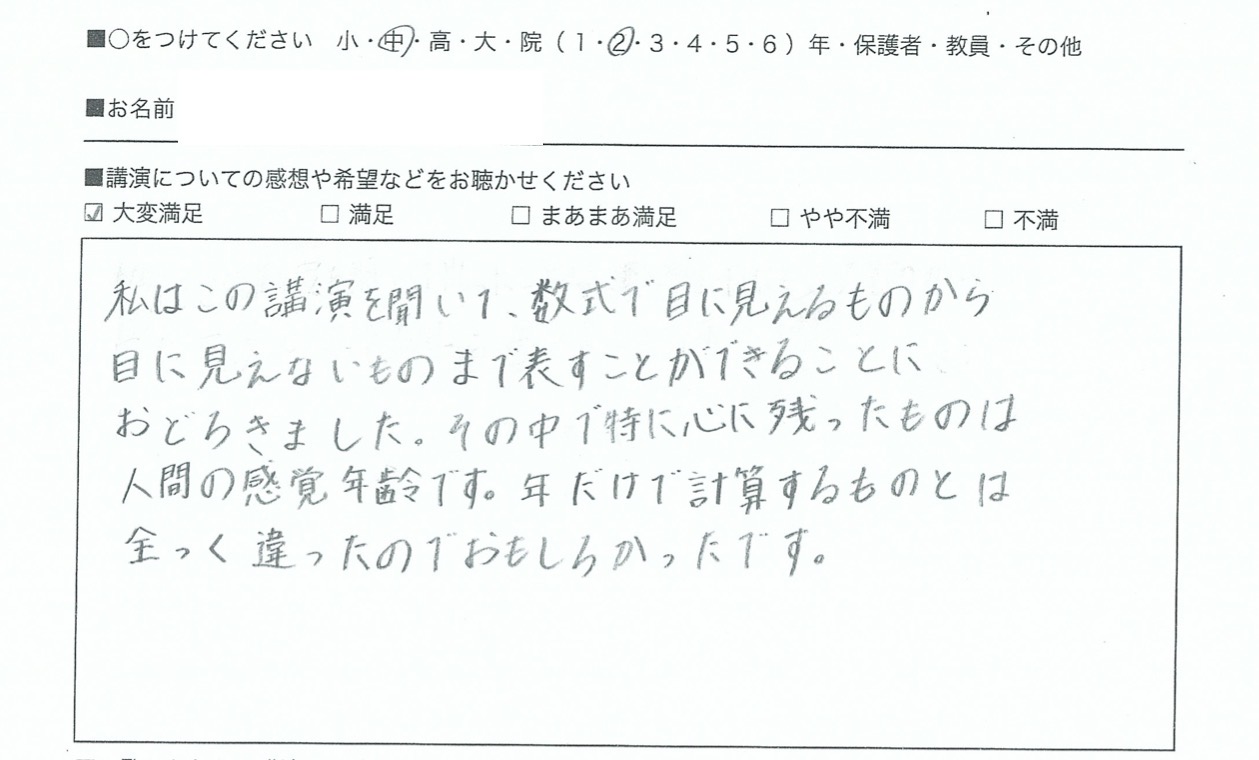 ■○をつけてください 小・中・高・大・院（1・2・3・4・5・6）年・保護者・教員・その他
■お名前
■講演についての感想や希望などをお聴かせください
☑ 大変満足 □ 満足 □ まあまあ満足 □ やや不満 □ 不満
私はこの講演を聞いて、数式で目に見えるものから
目に見えないものまで表すことができることに
おどろきました。その中で特に心に残ったものは
人間の感覚年齢です。年だけで計算するものとは
全っく違ったのでおもしろかったです。